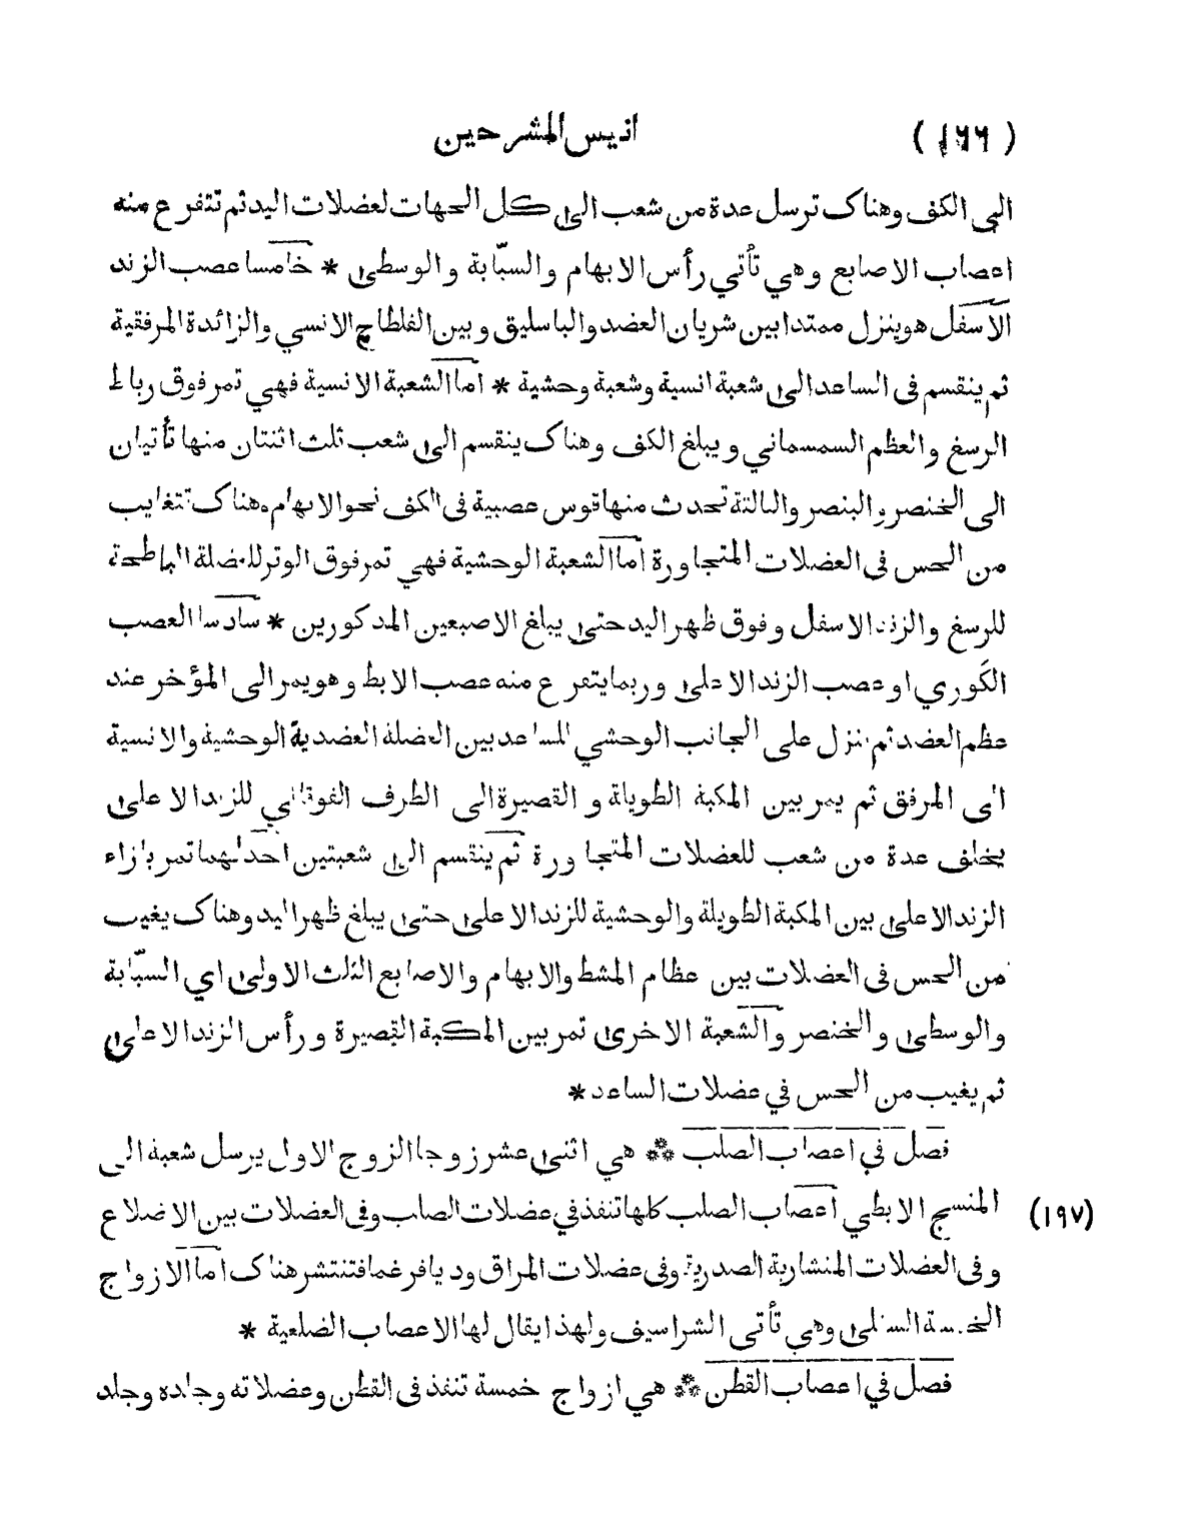 (١٦٦) انيس المشرحين
الى الكف وهناك ترسل عدة من شعب الى كل الجهات لعضلات اليد ثم تتفرع منه
اعصاب الاصابع وهي تأتي رأس الابهام والسبّابة والوسطى * خامسا عصب الزند
الاسفل هو ينزل ممتدا بين شريان العضد والباسليق وبين الفلطاح الانسي والزائدة المرفقية
ثم ينقسم فى الساعد الى شعبة انسية وشعبة وحشية * اما الشعبة الانسية فهي تمر فوق رباط
الرسغ والعظم السمسماني ويبلغ الكف وهناك ينقسم الى شعب ثلث اثنتان منها تأتيان
الى الخنصر والبنصر والثالثة تحدث منها قوس عصبية فى الكف نحو الابهام وهناك تتغايب
من الحس فى العضلات المتجاورة اما الشعبة الوحشية فهي تمر فوق الوتر للعضلة الباطحة
للرسغ والزند الاسفل وفوق ظهر اليد حتى يبلغ الاصبعين المذكورين * سادسا العصب
الكَوري او عصب الزند الاعلى وربما يتفرع منه عصب الابط وهو يمر الى المؤخر عند
عظم العضد ثم ينزل على الجانب الوحشي للساعد بين العضلة العضدية الوحشية والانسية
الى المرفق ثم يمر بين المكبة الطويلة و القصيرة الى الطرف الفوقاني للزند الاعلى
يخلف عدة من شعب للعضلات المتجاورة ثم ينقسم الى شعبتين احدٰلهما تمر بازاء
الزند الاعلى بين المكبة الطويلة والوحشية للزند الاعلى حتى يبلغ ظهر اليد وهناك يغيب
من الحس فى العضلات بين عظام المشط والابهام والاصابع الثلث الاولى اي السبّابة
والوسطى والخنصر والشعبة الاخرى تمر بين المكبة القصيرة ورأس الزند الاعلى
ثم يغيب من الحس في عضلات الساعد *
فصل في اعصاب الصلب ⁂ هي اثنى عشر زوجا الزوج الاول يرسل شعبة الى
(١٩٧) المنسج الابطي اعصاب الصلب كلها تنفذ في عضلات الصلب وفى العضلات بين الاضلاع
وفى العضلات المنشارية الصدرية وفى عضلات المراق وديافرغما فتنتشر هناك اما الازواج
الخمسة السفلى وهي تأتى الشراسيف ولهذا يقال لها الاعصاب الضلعية *
فصل في اعصاب القطن ⁂ هي ازواج خمسة تنفذ فى القطن وعضلاته وجلده وجلد